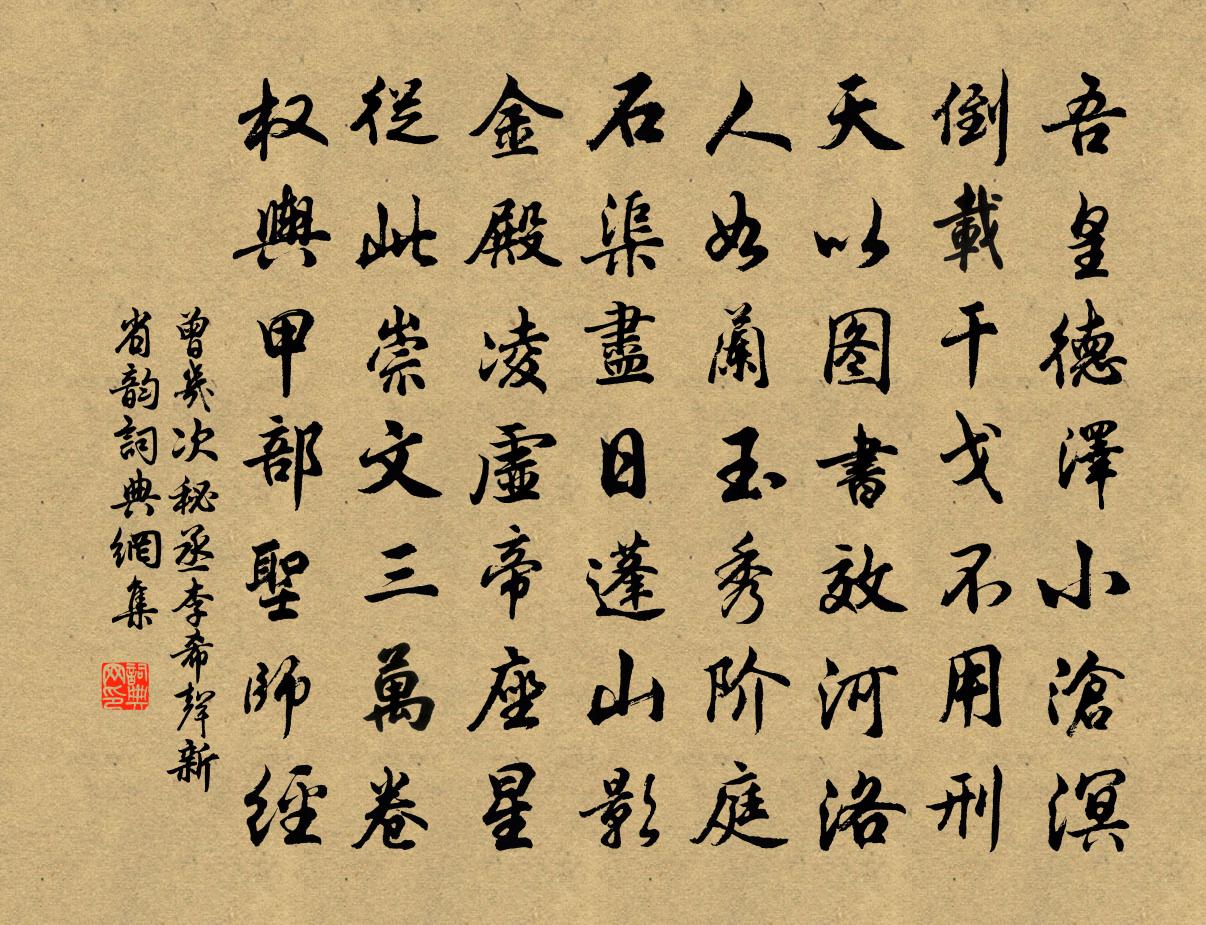 吾皇德澤小滄溟
倒載干戈不用刑
天以图書效河洛
人如蘭玉秀阶庭
石渠盡日蓬山影
金殿凌虛帝座星
從此崇文三萬卷
权輿甲部聖師經
曾幾次秘丞李希聲新
省韵詞典網集
詞典网印